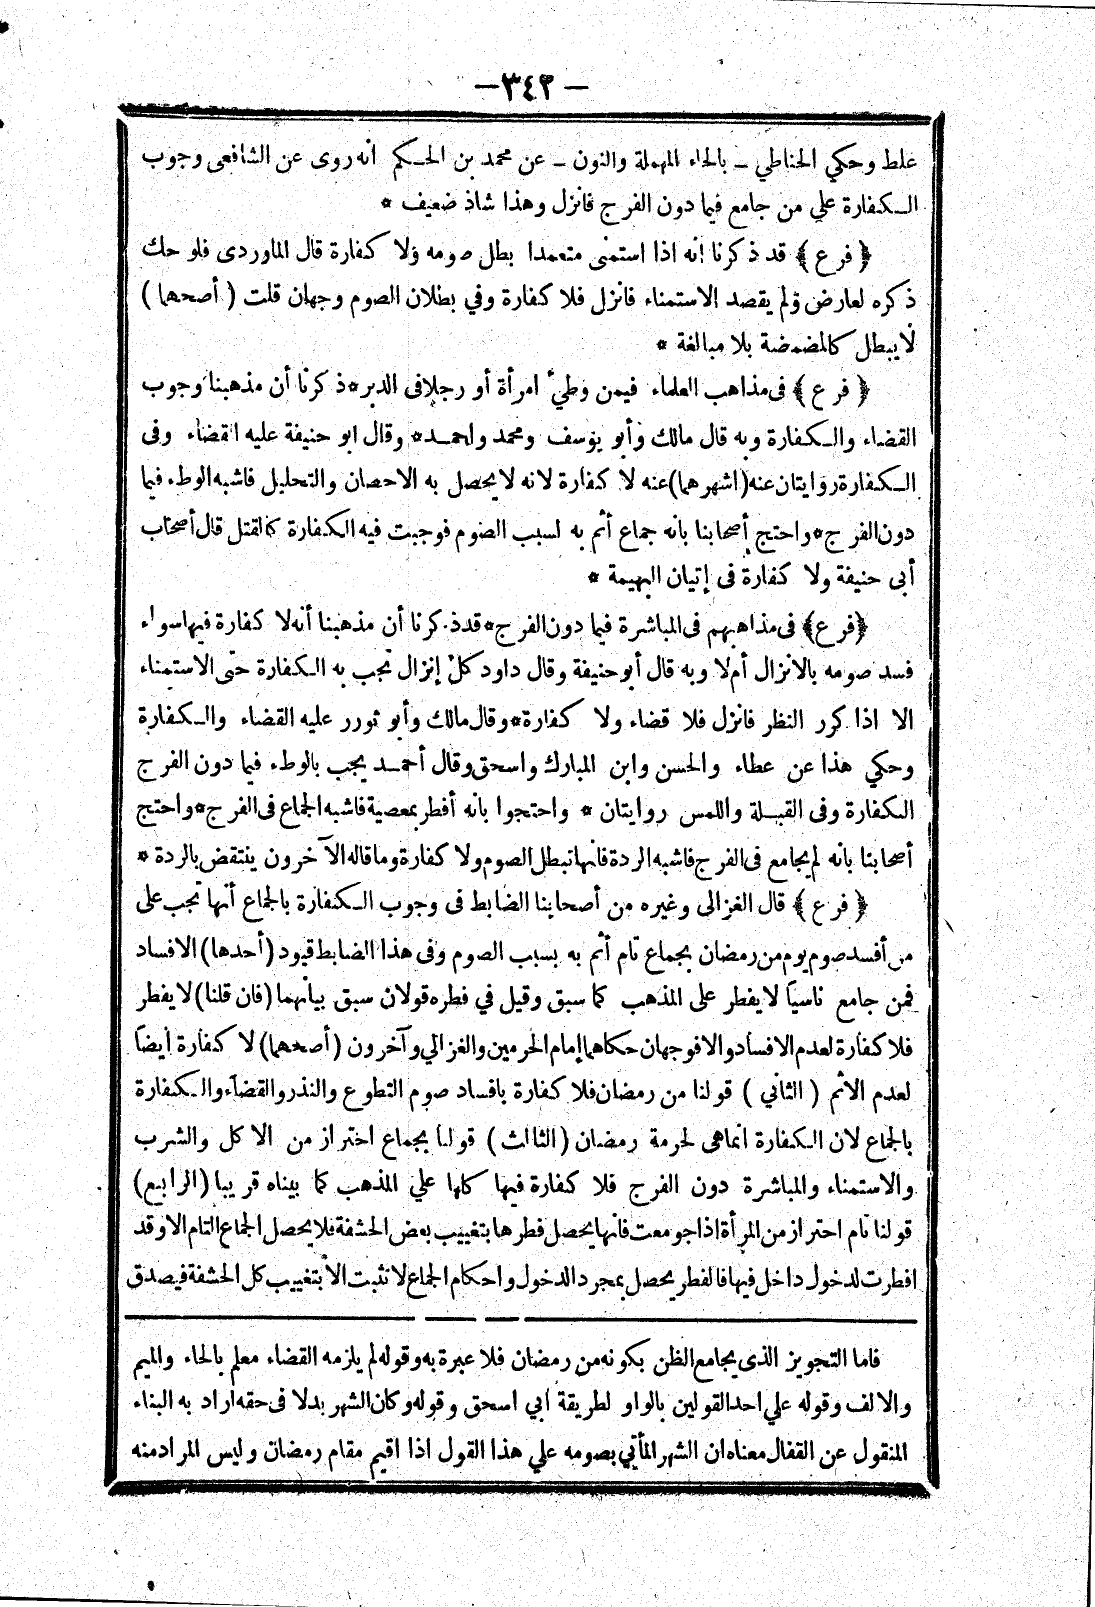 — ٣٤٢ —
غلط وحكي الحناطي _ بالحاء المهملة والنون _ عن محمد بن الحكم أنه روى عن الشافعى وجوب
الكفارة علي من جامع فيما دون الفرج فانزل وهذا شاذ ضعيف *
﴿ فرع ﴾ قد ذكرنا أنه اذا استمنى متعمدا بطل صومه ولا كفارة قال الماوردى فلو حك
ذكره لعارض ولم يقصد الاستمناء فانزل فلا كفارة وفي بطلان الصوم وجهان قلت ( أصحهما )
لا يبطل كالمضمضة بلا مبالغة *
﴿ فرع ﴾ فى مذاهب العلماء فيمن وطيء امرأة أو رجلا فى الدبر * ذكرنا أن مذهبنا وجوب
القضاء والكفارة وبه قال مالك وأبو يوسف ومحمد واحمد * وقال ابو حنيفة عليه القضاء وفى
الكفارة روايتان عنه (اشهرهما) عنه لا كفارة لانه لا يحصل به الاحصان والتحليل فاشبه الوطء فيما
دون الفرج * واحتج أصحابنا بانه جماع أثم به لسبب الصوم فوجبت فيه الكفارة كالقتل قال أصحاب
أبى حنيفة ولا كفارة فى إتيان البهيمة *
﴿ فرع ﴾ فى مذاهبهم فى المباشرة فيما دون الفرج * قد ذكرنا أن مذهبنا أنه لا كفارة فيها سواء
فسد صومه بالانزال أم لا وبه قال أبو حنيفة وقال داود كل إنزال تجب به الكفارة حتى الاستمناء
الا اذا كرر النظر فانزل فلا قضاء ولا كفارة * وقال مالك وأبو ثورر عليه القضاء والكفارة
وحكي هذا عن عطاء والحسن وابن المبارك واسحق وقال أحمد يجب بالوطء فيما دون الفرج
الكفارة وفى القبلة واللمس روايتان * واحتجوا بانه أفطر بمعصية فاشبه الجماع فى الفرج * واحتج
أصحابنا بانه لم يجامع فى الفرج فاشبه الردة فانها تبطل الصوم ولا كفارة وما قاله الآخرون ينتقض بالردة *
﴿ فرع ﴾ قال الغزالى وغيره من أصحابنا الضابط فى وجوب الكفارة بالجماع أنها تجب على
من أفسد صوم يوم من رمضان بجماع تام أثم به بسبب الصوم وفى هذا الضابط قيود (أحدها) الافساد
فمن جامع ناسيا لا يفطر على المذهب كما سبق وقيل في فطره قولان سبق بيانهما (فان قلنا) لا يفطر
فلا كفارة لعدم الافساد والا فوجهان حكاهما إمام الحرمين والغزالي وآخرون (أصحهما) لا كفارة أيضا
لعدم الاثم ( الثاني ) قولنا من رمضان فلا كفارة بافساد صوم التطوع والنذر والقضاء والكفارة
بالجماع لان الكفارة انما هى لحرمة رمضان (الثالث ) قولنا بجماع احتراز من الاكل والشرب
والاستمناء والمباشرة دون الفرج فلا كفارة فيها كلها علي المذهب كما بيناه قريبا (الرابع)
قولنا تام احتراز من المرأة اذا جومعت فانها يحصل فطرها بتغييب بعض الحشفة فلا يحصل الجماع التام الا وقد
افطرت لدخول داخل فيها فالفطر يحصل بمجرد الدخول واحكام الجماع لا تثبت الا بتغييب كل الحشفة فيصدق
فاما التجويز الذى يجامع الظن بكونه من رمضان فلا عبرة به وقوله لم يلزمه القضاء معلم بالحاء والميم
والالف وقوله علي احد القولين بالواو لطريقة أبي اسحق وقوله وكان الشهر بدلا فى حقه اراد به البناء
المنقول عن القفال معناه ان الشهر المأتي بصومه علي هذا القول اذا اقيم مقام رمضان وليس المراد منه